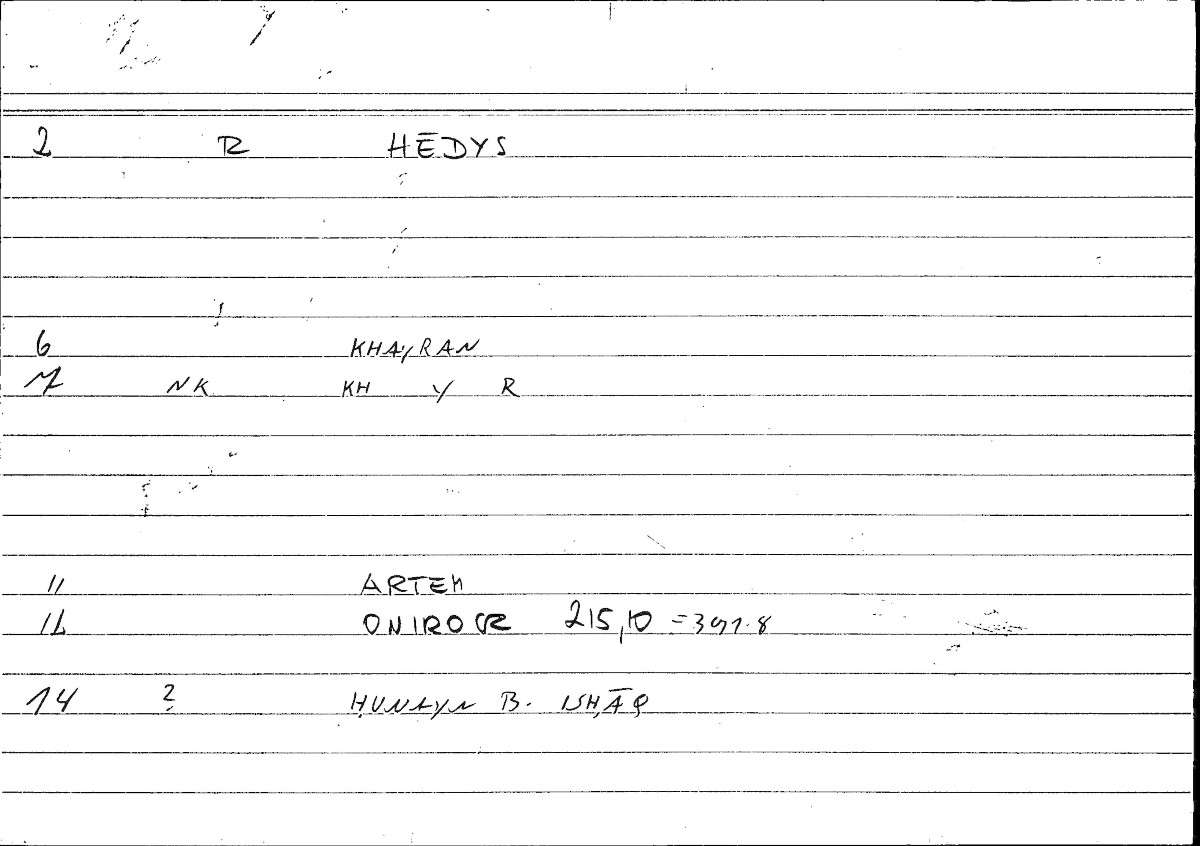 2 R HĒDYS
6 KHAYRAN
7 NK KH Y R
11 ARTEM
12 ONIROCR 215,10 = 391.8
14 ? ḤUNAYN B. ISḤĀQ